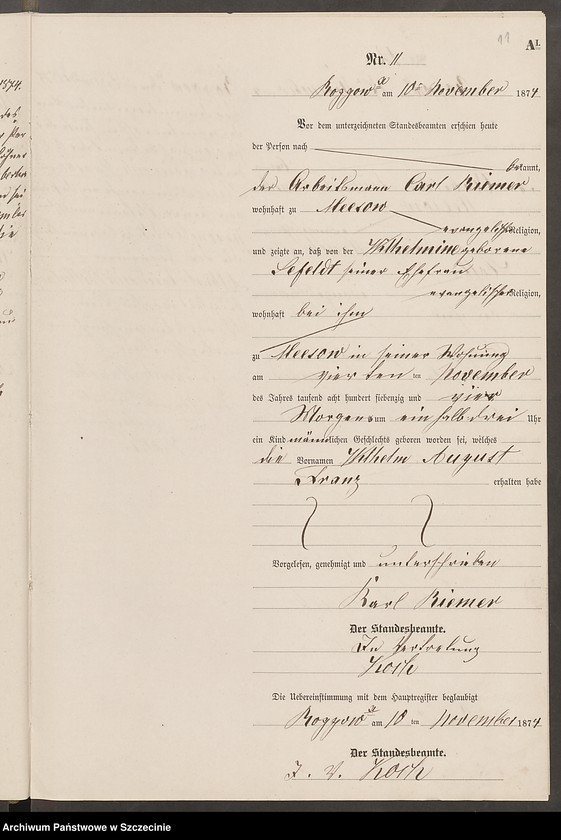 11
A¹.
Nr. 11
Roggow A am 10ten November 1874
Vor dem unterzeichneten Standesbeamten erschien heute
der Person nach
bekannt,
der Arbeitsmann Carl Riemer
wohnhaft zu Meesow
evangelischer Religion,
und zeigte an, daß von der Wilhelmine geborene
Lefeldt seiner Ehefrau
evangelischer Religion,
wohnhaft bei ihm
zu Meesow in seiner Wohnung
am vierten ten November
des Jahres tausend acht hundert siebenzig und vier
Morgens um ein halb drei Uhr
ein Kind männlichen Geschlechts geboren worden sei, welches
die Vornamen Wilhelm August
Franz erhalten habe
Vorgelesen, genehmigt und unterschrieben
Karl Riemer
Der Standesbeamte.
In Vertretung
Koch
Die Uebereinstimmung mit dem Hauptregister beglaubigt
Roggow A am 10 ten November 1874
Der Standesbeamte.
I. V. Koch
Archiwum Państwowe w Szczecinie